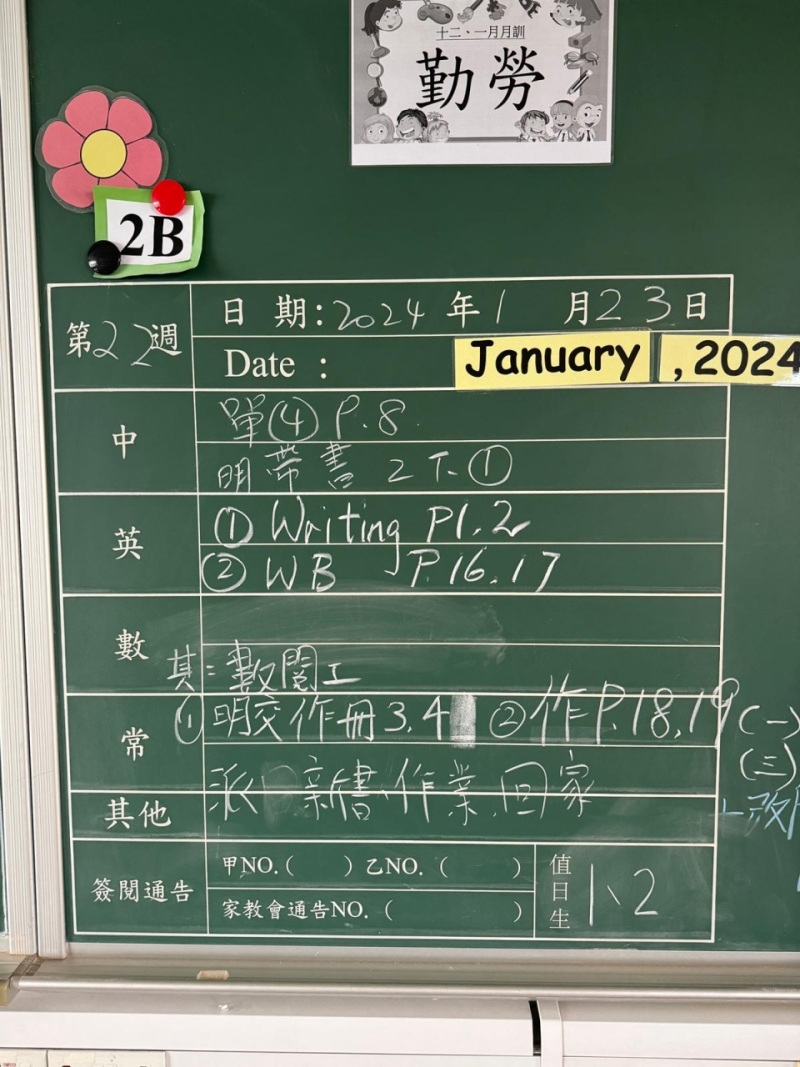 十二、一月月訓
勤勞
2B
第22週
日期：2024年1月23日
Date：
January , 2024
中
單④ P.8
明帶書 2下①
英
① Writing P1.2
② WB P.16.17
數
其：數閱工
常
① 明交作冊3.4 ② 作P.18,19(一)
(三)
派新書、作業回家
改
其他
簽閱通告
甲NO.( )乙NO.( )
家教會通告NO.( )
值日生
1、2